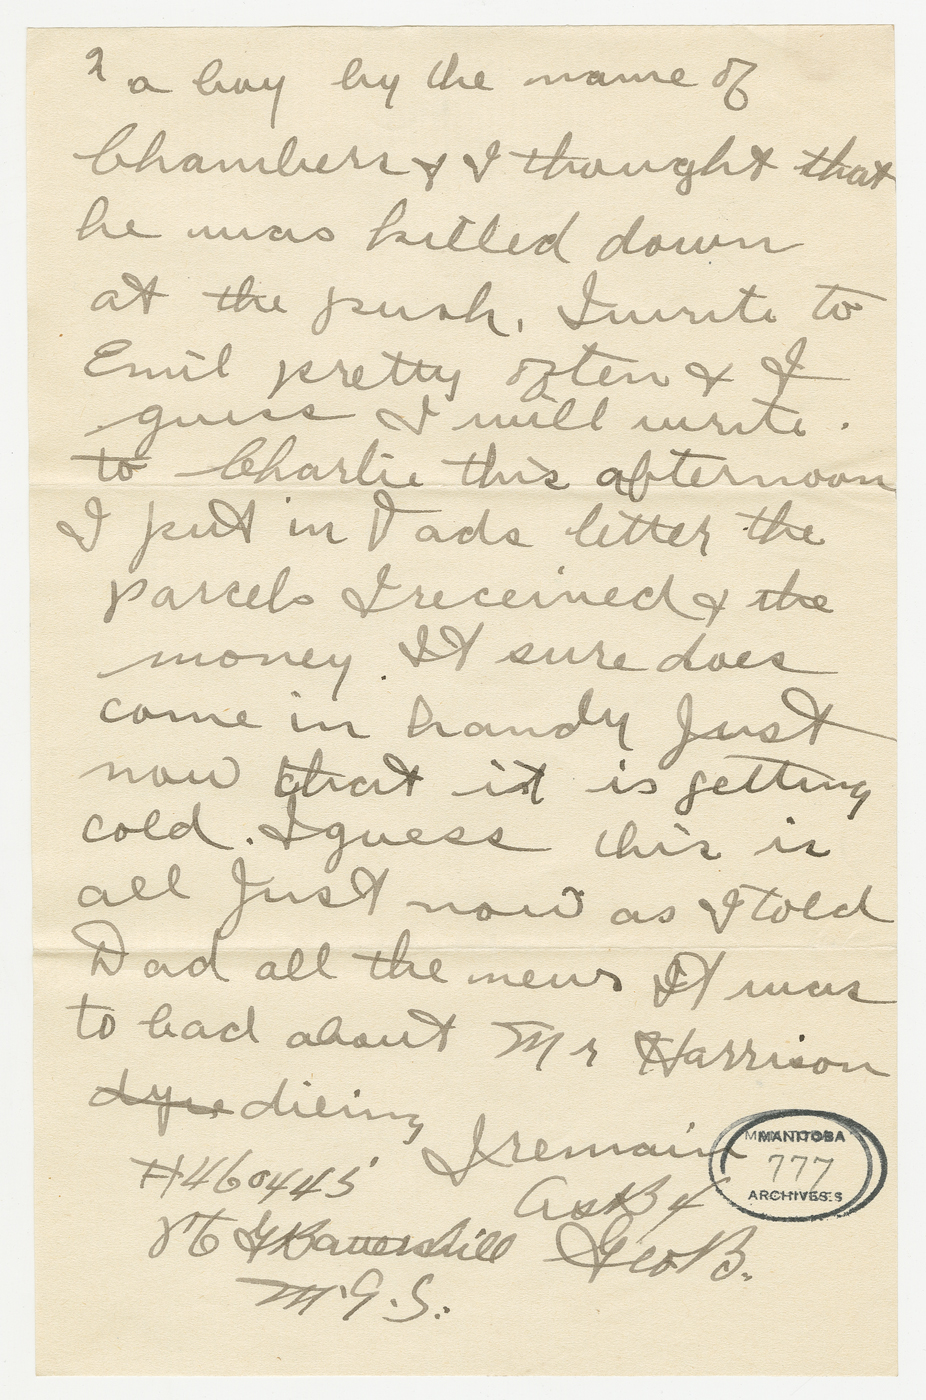 2 a boy by the name of
Chambers & I thought that
he was killed down
at the push. I write to
Emil pretty often & I
guess I will write.
to Charlie this afternoon
I put in Dads letter the
parcels I received & the
money. It sure does
come in handy Just
now that it is getting
cold. I guess this is
all Just now as I told
Dad all the news It was
to bad about Mr Harrison
dyie dieing
I remain
MANITOBA
777
ARCHIVES
#460445
As B 4
Pte G Battershill Geo B.
M.G.S.